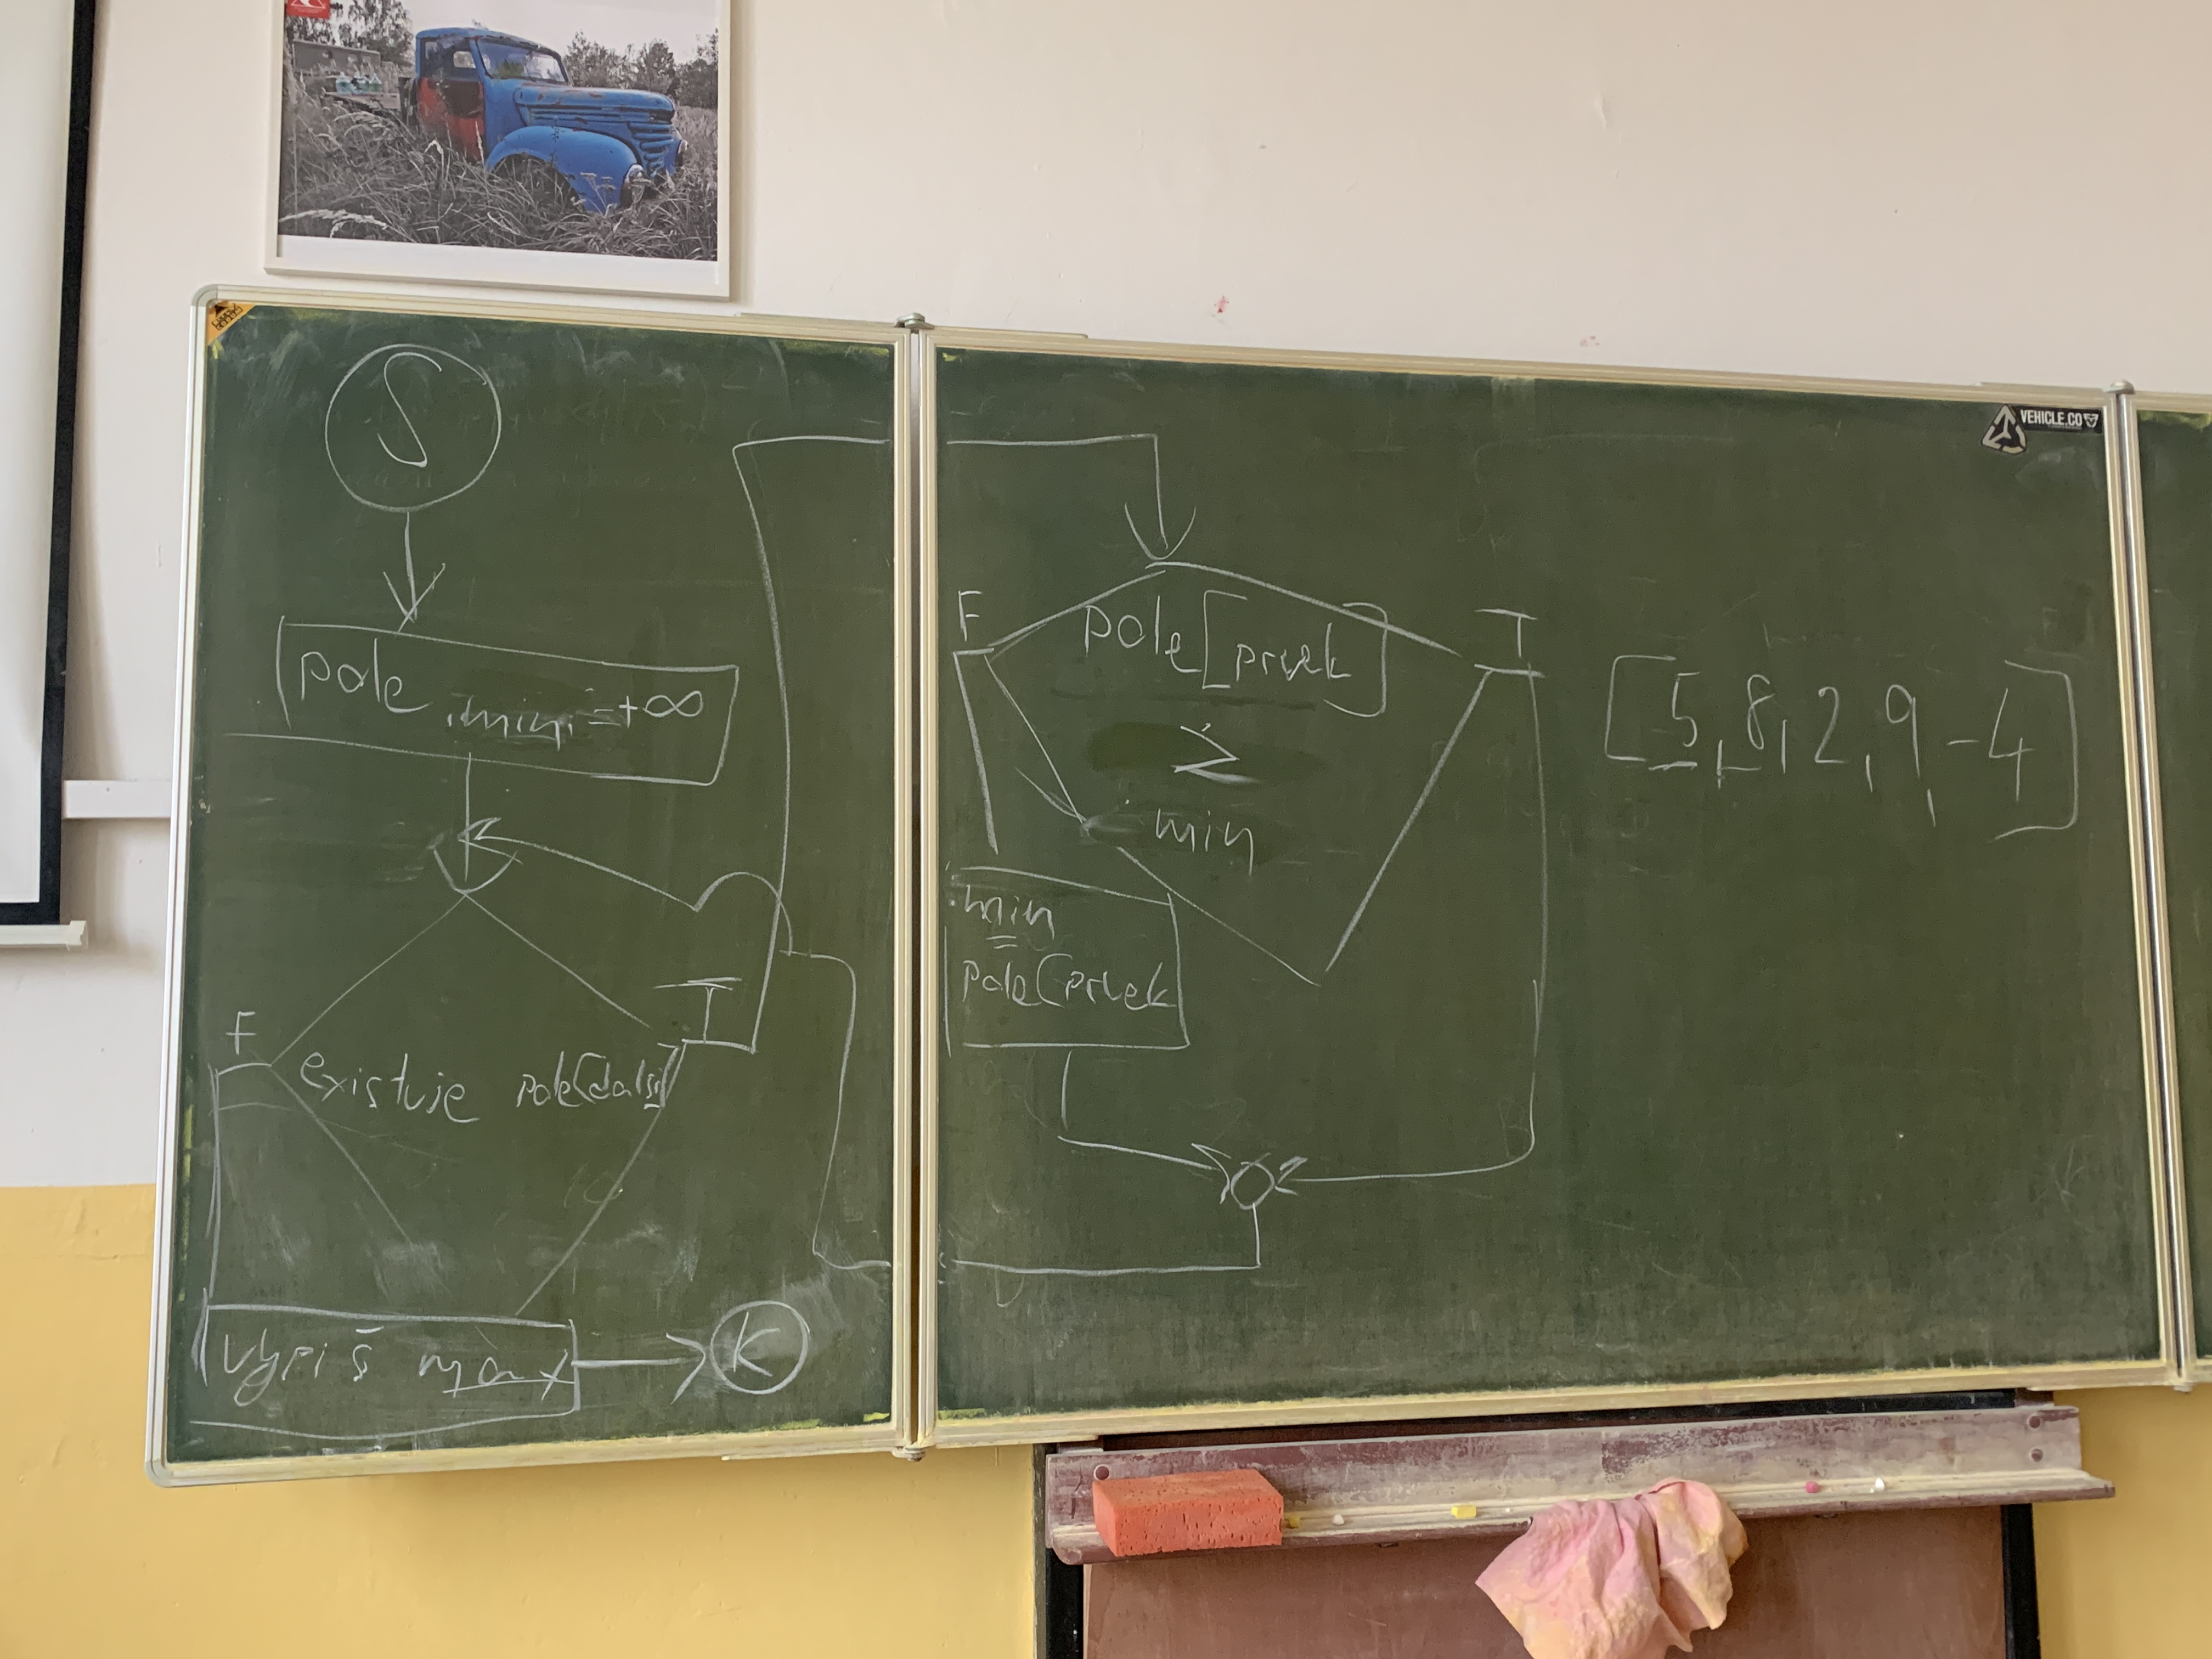 S
pole , min, = +∞
F
T
existuje pole[další]
vypiš max
K
F
T
pole[prvek]
≥
min
min
=
pole[prvek
[5, 8, 2, 9, -4]
VEHICLE.CO